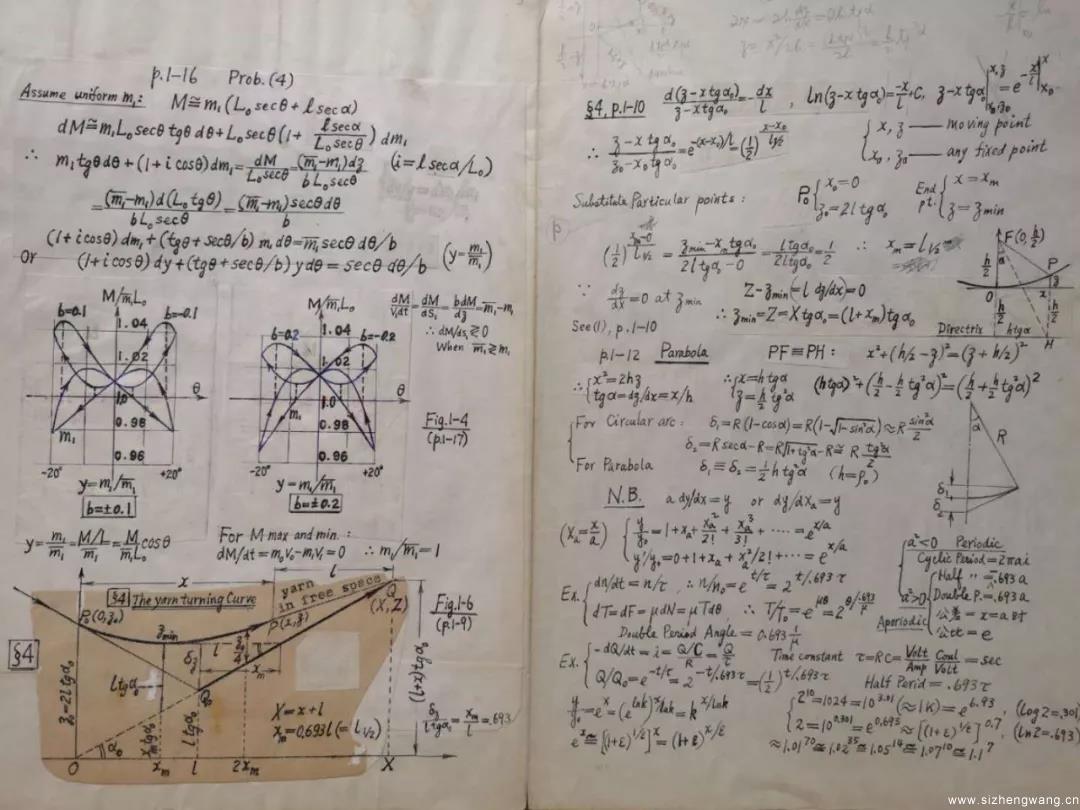 p.1-16 Prob.(4)
Assume uniform m₁: M≅m₁(L₀secθ+lsecα)
dM≅m₁L₀secθtgθdθ+L₀secθ(1+ lsecα/L₀secθ) dm₁
∴ m₁tgθdθ+(1+i cosθ)dm₁=dM/L₀secθ=(m̅₁-m₁)dz/bL₀secθ (i=lsecα/L₀)
=(m̅₁-m₁)d(L₀tgθ)/bL₀secθ=(m̅₁-m₁)secθdθ/b
(1+i cosθ)dm₁+(tgθ+secθ/b)m₁dθ=m̅₁secθdθ/b
Or (1+i cosθ)dy+(tgθ+secθ/b)ydθ=secθdθ/b (y=m₁/m̅₁)
M/m̅₁L₀
b=0.1 b=-0.1
1.04
1.02
1.0
0.98
0.96
θ
m₁
-20° +20°
y=m₁/m̅₁
b=±0.1
M/m̅₁L₀
b=0.2 b=-0.2
1.04
1.02
1.0
0.98
0.96
θ
m₁
-20° +20°
y=m₁/m̅₁
b=±0.2
dM/V₁dt=dM/dS₁=bdM/dz=m̅₁-m₁
∴ dM/ds₁≷0
When m̅₁≷m₁
Fig.1-4
(p.1-17)
y=m₁/m̅₁=M/L/m̅₁=M/m̅₁L₀ cosθ
For M max and min.:
dM/dt=m₀V₀-m₁V₁=0 ∴ m₁/m̅₁=1
§4 The yarn turning Curve
yarn
in free space
x l
Q
(X,Z)
P₀(0,z₀)
P(x,z)
z min
Fig.1-6
(p.1-9)
§4
z₀=2ltgα₀
ltgα₀
δz
l
xₘ
Q₀
(x+l)tgα₀
X=x+l
xₘ=0.693l(=l₁/₂)
δz/ltgα₀=xₘ/l=.693
xₘtgα₀
ltgα₀
α₀
O xₘ l 2xₘ X
§4, p.1-10 d(z-xtgα₀)/z-xtgα₀=-dx/l, ln(z-xtgα₀)=-x/l+C, z-xtgα₀|x,z x₀,z₀=e^-x/l|x x₀
∴ z-xtgα₀/z₀-x₀tgα₀=e^-(x-x₀)/l=(1/2)^x-x₀/l₁/₂
x, z — moving point
x₀, z₀ — any fixed point
Substitute Particular points: P₀{x₀=0 z₀=2ltgα₀ End pt.{x=xₘ z=z min
(1/2)^xₘ-0/l₁/₂=z min-xₘtgα₀/2ltgα₀-0=ltgα₀/2ltgα₀=1/2 ∴ xₘ=l₁/₂
∵ dz/dx=0 at z min Z-z min(=l dz/dx)=0
See(1), p.1-10 ∴ z min=Z=Xtgα₀=(l+xₘ)tgα₀
F(0,h/2)
α
h/2
P
z
O x
h/2 h/2
Directrix htgα H
p.1-12 Parabola PF≡PH: x²+(h/2-z)²=(z+h/2)²
∴{x²=2hz tgα=dz/dx=x/h ∴{x=htgα z=h/2 tg²α (htgα)²+(h/2-h/2tg²α)²=(h/2+h/2tg²α)²
For Circular arc: δ₁=R(1-cosα)=R(1-√1-sin²α)≈R sin²α/2
δ₂=Rsecα-R=R√1+tg²α-R≅R tg²α/2
For Parabola δ₁≡δ₂=1/2 h tg²α (h=ρ₀)
α
R
δ₁
δ₂
N.B. a dy/dx=y or dy/dxₐ=y
(xₐ=x/a) {y/y₀=1+xₐ+xₐ²/2!+xₐ³/3!+⋯=e^x/a
y'/y₀=0+1+xₐ+xₐ²/2!+⋯=e^x/a
a²<0 Periodic
Cyclic Period=2πai
Half 〃 =.693a
a²>0 Double P.=.693a
Aperiodic 公差=x=a时
公比=e
Ex. {dn/dt=n/τ ∴ n/n₀=e^t/τ=2^t/.693τ
dT=dF=μdN=μTdθ ∴ T/T₀=e^μθ=2^θ/.693/μ
Double Period Angle=0.693 1/μ
Ex. {-dQ/dt=i=Q/C/R=Q/τ Time constant τ=RC=Volt/Amp Coul/Volt=sec
Q/Q₀=e^-t/τ=2^-t/.693τ=(1/2)^t/.693τ Half Perid=.693τ
y/y₀=e^x=(e^lnk)^x/lnk=k^x/lnk
e^x≅[(1+ε)^1/ε]^x=(1+ε)^x/ε
2¹⁰=1024=10^3.01(≈1K)=e^6.93 (Log2=.301)
2=10^0.301=e^0.693≈[(1+ε)^1/ε]^0.7 (ln2=.693)
≈1.01⁷⁰≅1.02³⁵≅1.05¹⁴≅1.07¹⁰≅1.1⁷
www.sizhengwang.cn